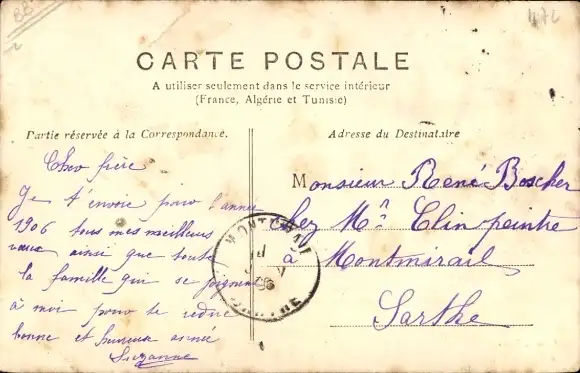 88
CARTE POSTALE
A utiliser seulement dans le service intérieur
(France, Algérie et Tunisie)
Partie réservée à la Correspondance.
Adresse du Destinataire
Cher frère
Je t'envoie pour l'année
1906 tous mes meilleurs
vœux ainsi que toute
la famille qui se joignent
à moi pour te
bonne et heureuse année
Suzanne
Monsieur René Boscher
chez Mr Clin peintre
à Montmirail
Sarthe
MONTMIRAIL
SARTHE